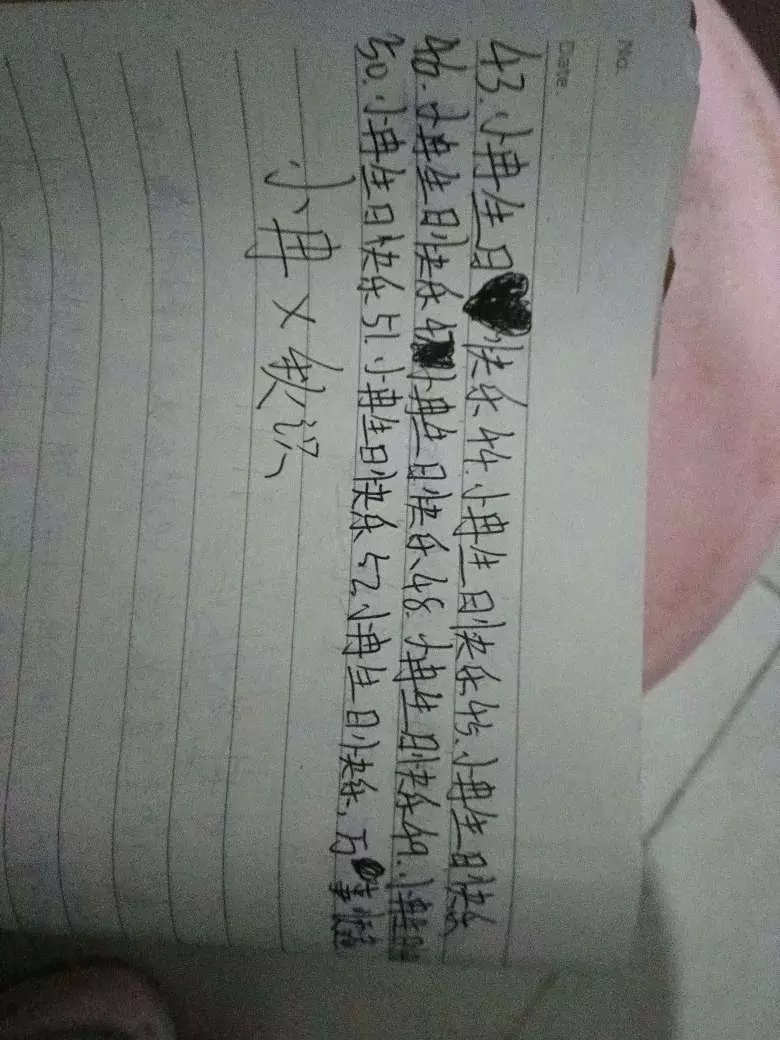 No.
Date
43.小冉生日快乐44.小冉生日快乐45.小冉生日快乐
46.小冉生日快乐47小冉生日快乐48.小冉生日快乐49.小冉生日
50.小冉生日快乐51.小冉生日快乐52.小冉生日快乐,万事
小冉×